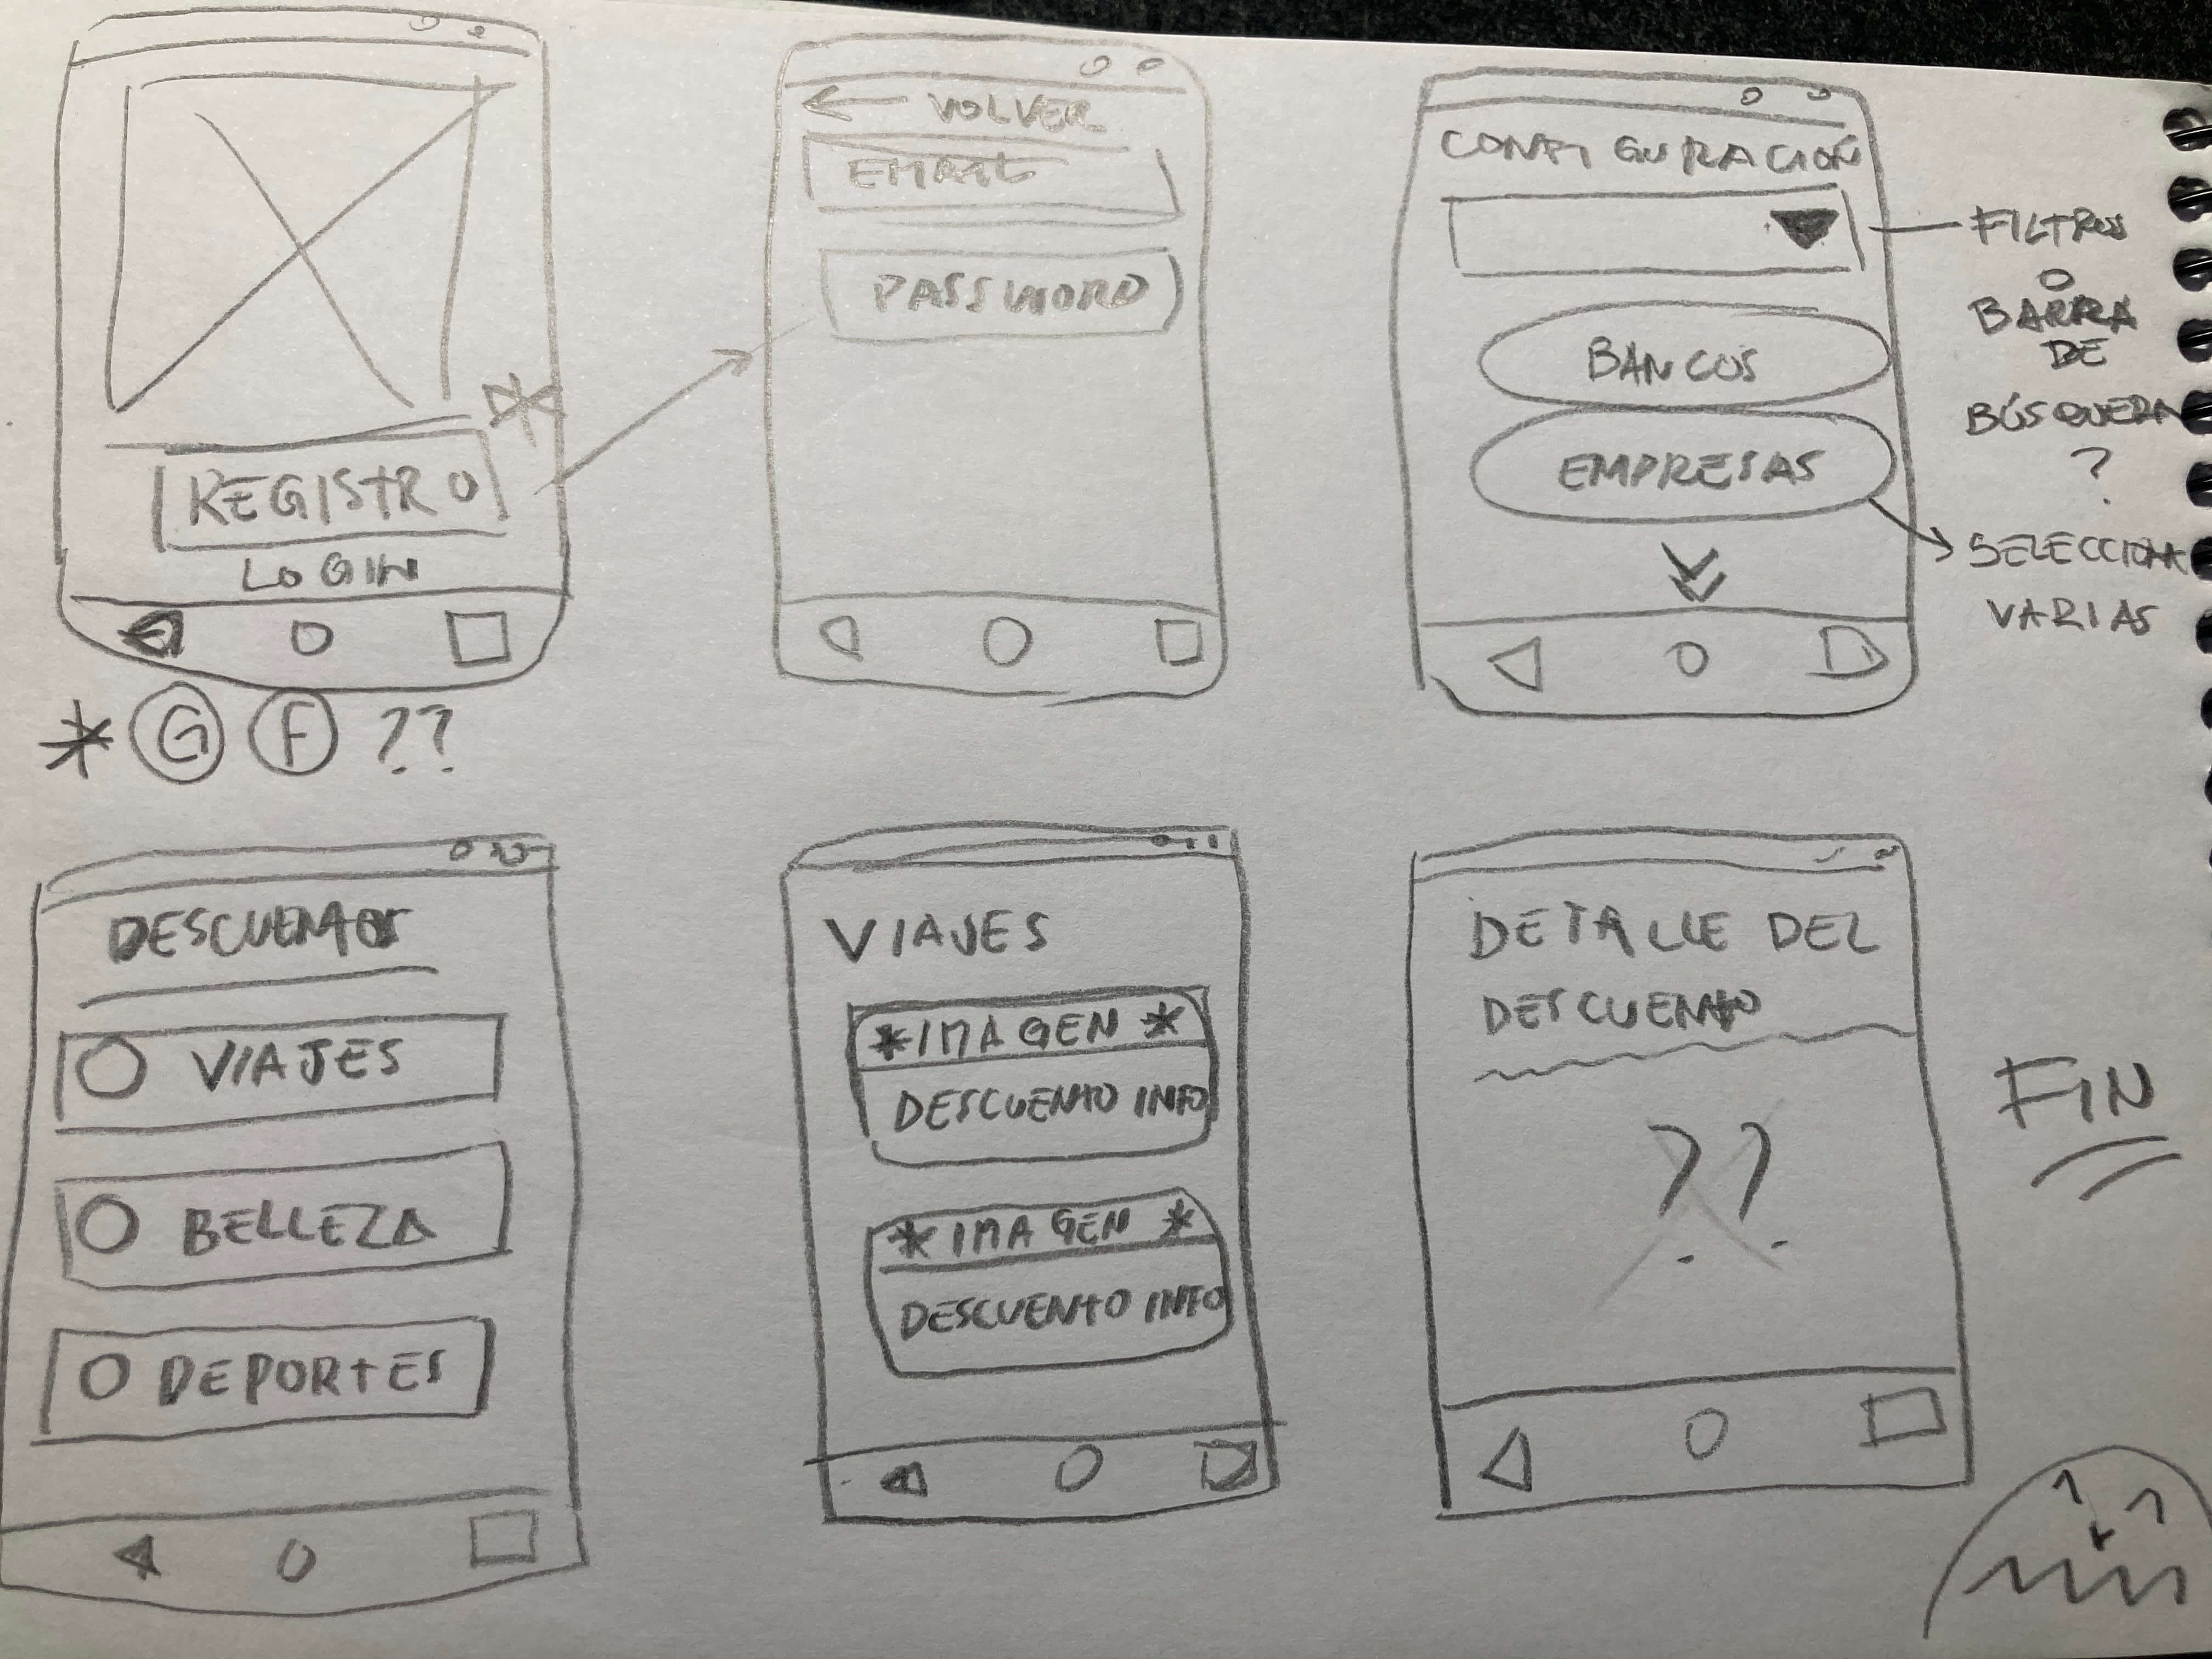 REGISTRO
LOGIN
* G F ??
← VOLVER
EMAIL
PASSWORD
CONFIGURACIÓN
BANCOS
EMPRESAS
FILTROS
O
BARRA
DE
BÚSQUEDA
?
SELECCIONA
VARIAS
DESCUENTOS
VIAJES
BELLEZA
DEPORTES
VIAJES
*IMAGEN*
DESCUENTO INFO
*IMAGEN*
DESCUENTO INFO
DETALLE DEL
DESCUENTO
??
FIN